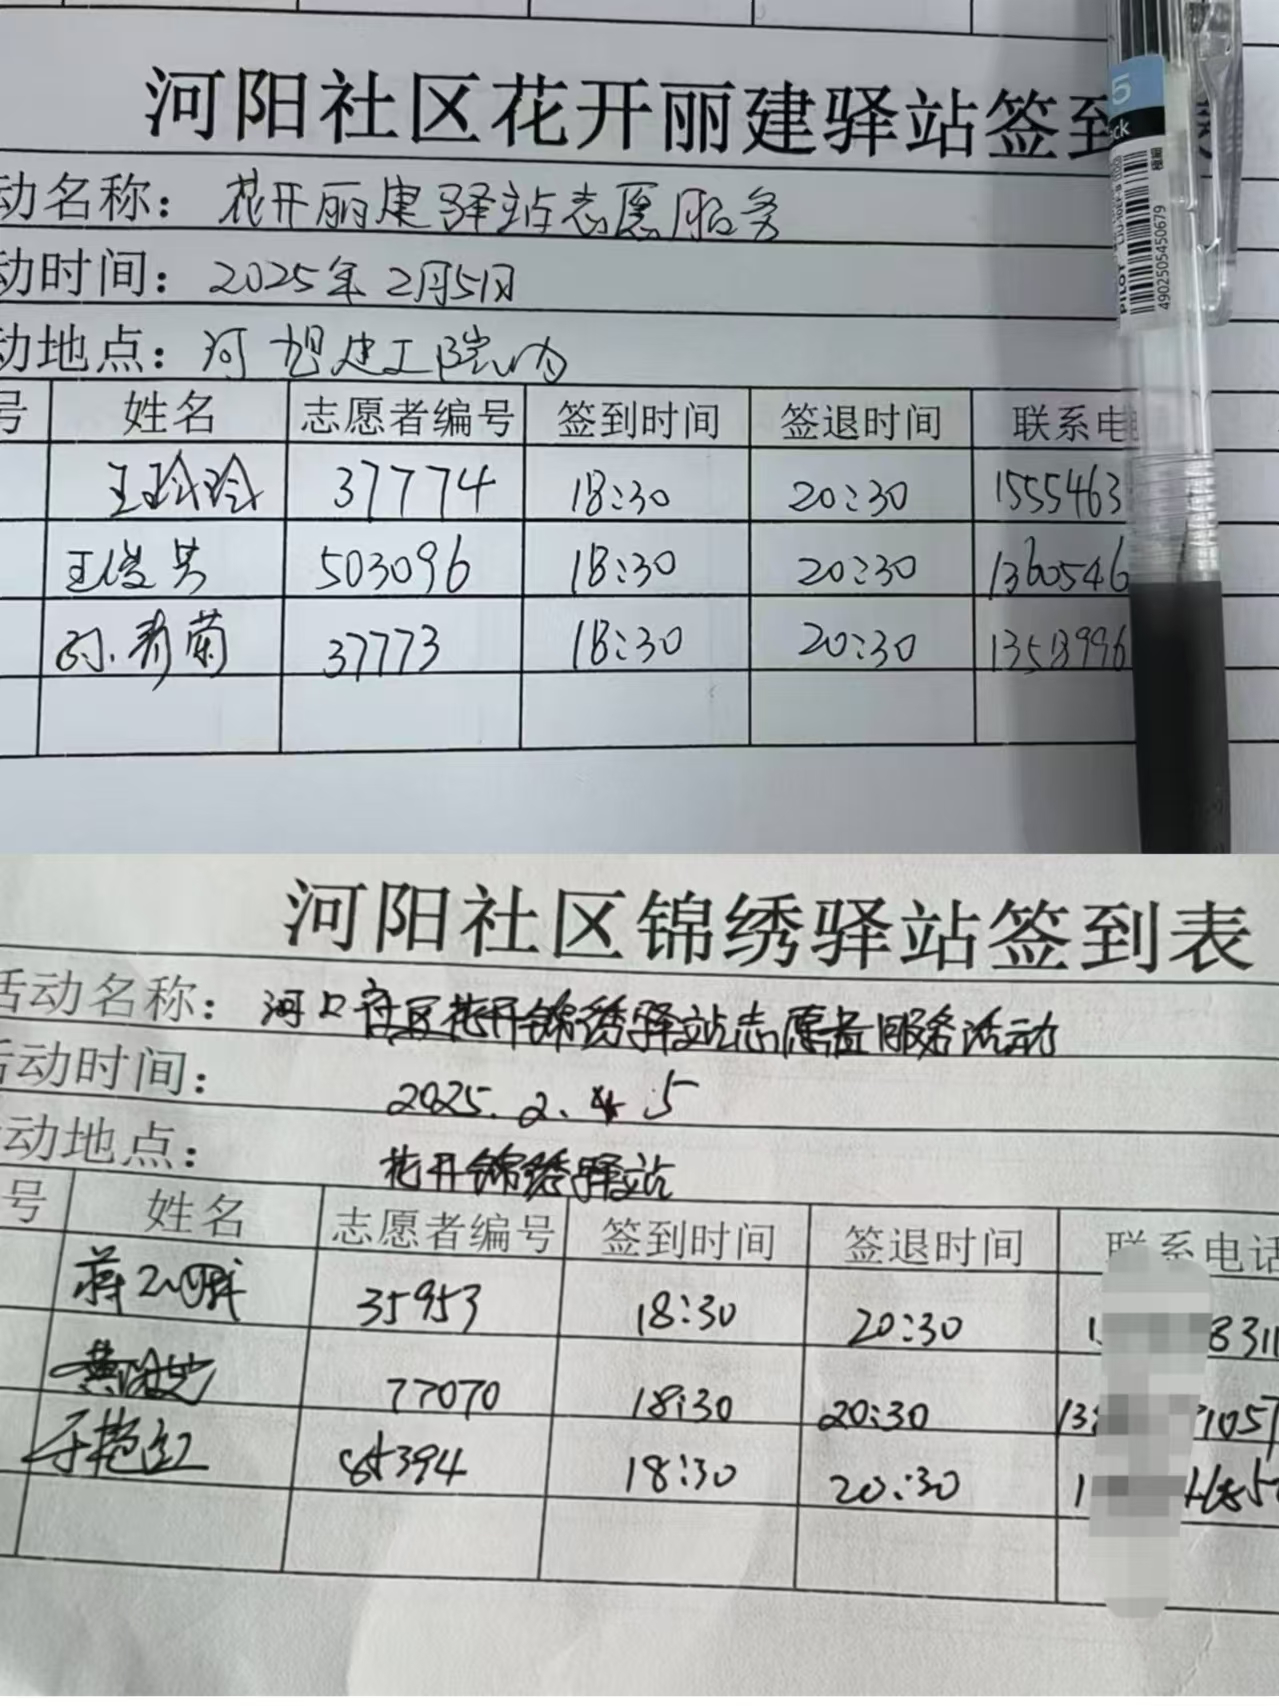 河阳社区花开丽建驿站签到
动名称：花开丽建驿站志愿服务
动时间：2025年2月5日
动地点：河 建工院内
号 姓名 志愿者编号 签到时间 签退时间 联系电
王玲玲 37774 18:30 20:30 1555463
王俊英 503096 18:30 20:30 1360546
孙秀菊 37773 18:30 20:30 1358996
5
ck
PILOT
4902505450679
河阳社区锦绣驿站签到表
活动名称：河口社区花开锦绣驿站志愿者服务活动
活动时间：2025.2.5
活动地点：花开锦绣驿站
号 姓名 志愿者编号 签到时间 签退时间 联系电话
蒋 35953 18:30 20:30 1 8311
黄 77070 18:30 20:30 13 1057
于艳红 394 18:30 20:30 1